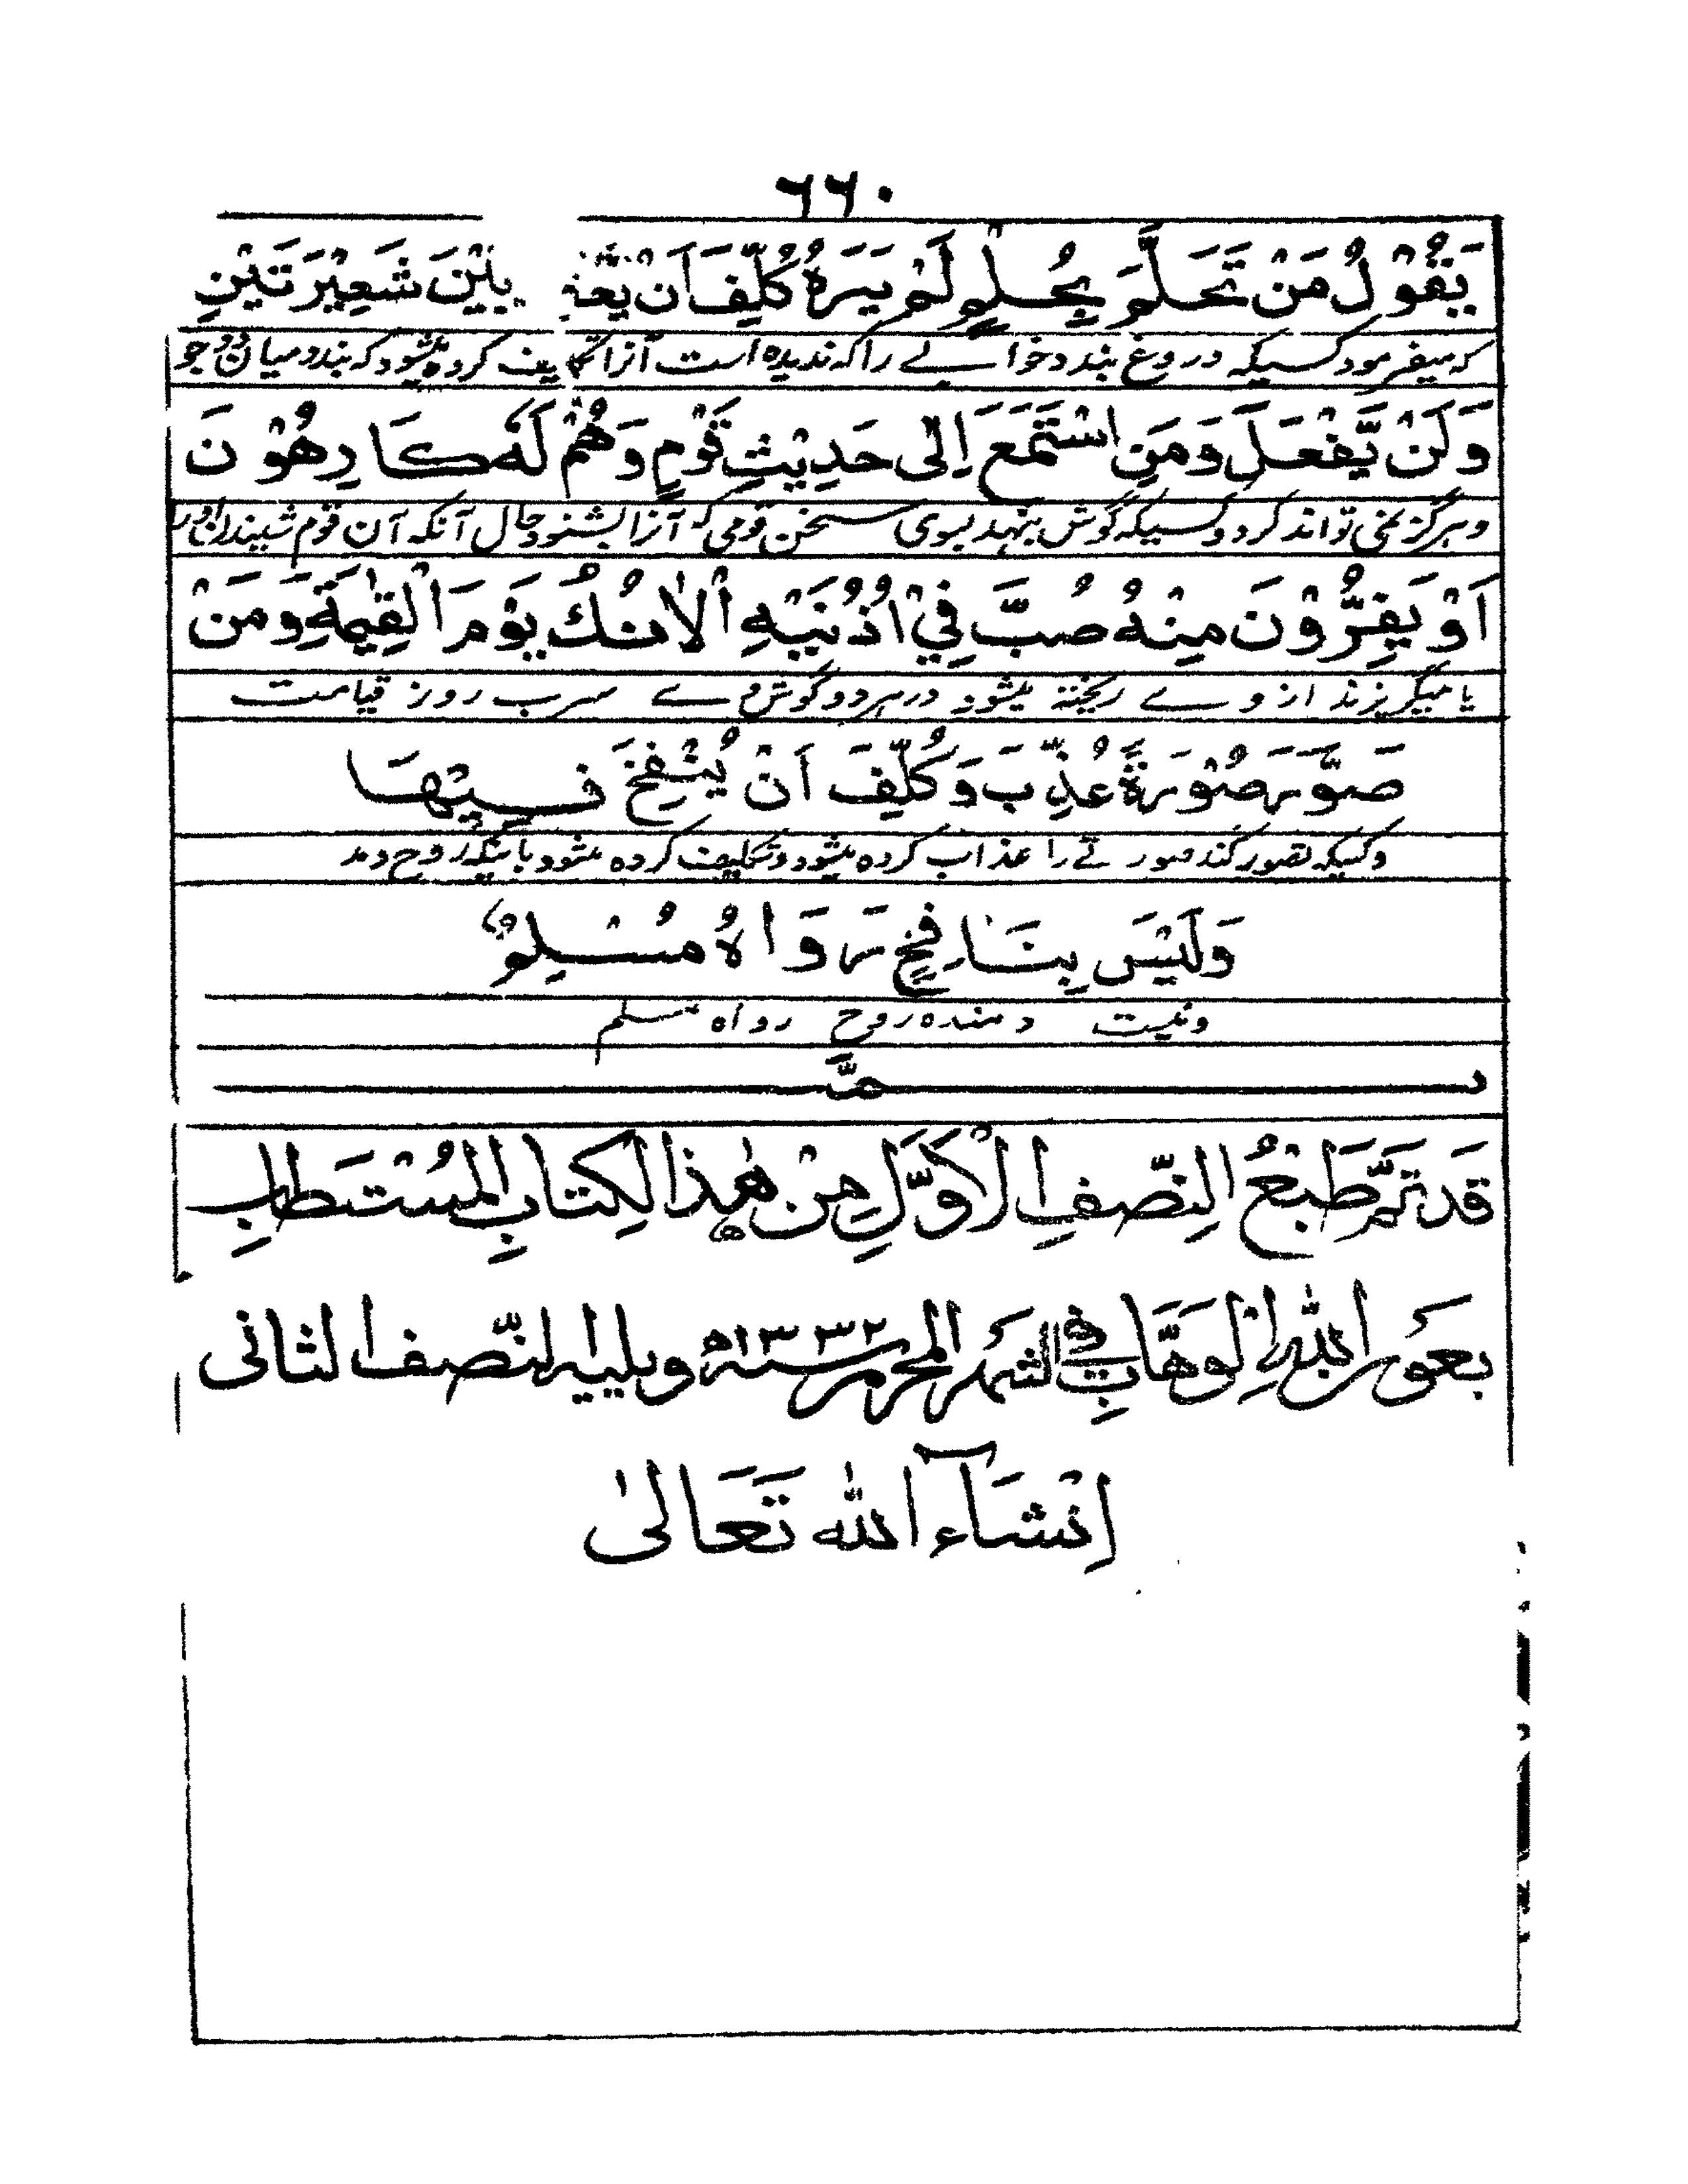 ۶۶۰
يَقُوْلُ مَنْ تَحَلَّمَ بِحُلْمٍ لَمْ يَرَهُ كُلِّفَ اَنْ يَعْقِدَ بَيْنَ شَعِيْرَتَيْنِ
که میفرمود کسیکه دروغ بندد خوابے را که ندیده است آنرا تکلیف کرده میشود که بندد میان دو جو
وَلَنْ يَّفْعَلَ وَمَنِ اسْتَمَعَ اِلٰى حَدِيْثِ قَوْمٍ وَهُمْ لَهٗ كَارِهُوْنَ
و هرگز نمی تواند کرد و کسیکه گوش بنهد بسوی سخن قومی که آنرا بشنود حال آنکه آن قوم شنیدن اورا
اَوْ يَفِرُّوْنَ مِنْهُ صُبَّ فِيْ اُذُنَيْهِ الْاٰنُكُ يَوْمَ الْقِيٰمَةِ وَمَنْ
یا میگریزند از وے ریخته میشود در هر دو گوش وے سرب روز قیامت
صَوَّرَ صُوْرَةً عُذِّبَ وَكُلِّفَ اَنْ يُنْفِخَ فِيْهَا
و کسیکه تصویر کند صورتے را عذاب کرده میشود و تکلیف کرده میشود باینکه روح دمد
وَلَيْسَ بِنَافِخٍ رَوَاهُ مُسْلِمٌ
و نیست دمنده روح رواه مسلم
تمّت
قَدْ تَمَّ طَبْعُ النِّصْفِ الْاَوَّلِ مِنْ هٰذَا الْكِتَابِ الْمُسْتَطَابِ
بعَون اللّٰهِ الْوَهَّابِ فی الشهر المحرم سنه ۱۳۳۲ه ويليه النّصف الثانى
اِنْشَآءَ اللّٰه تَعَالٰى